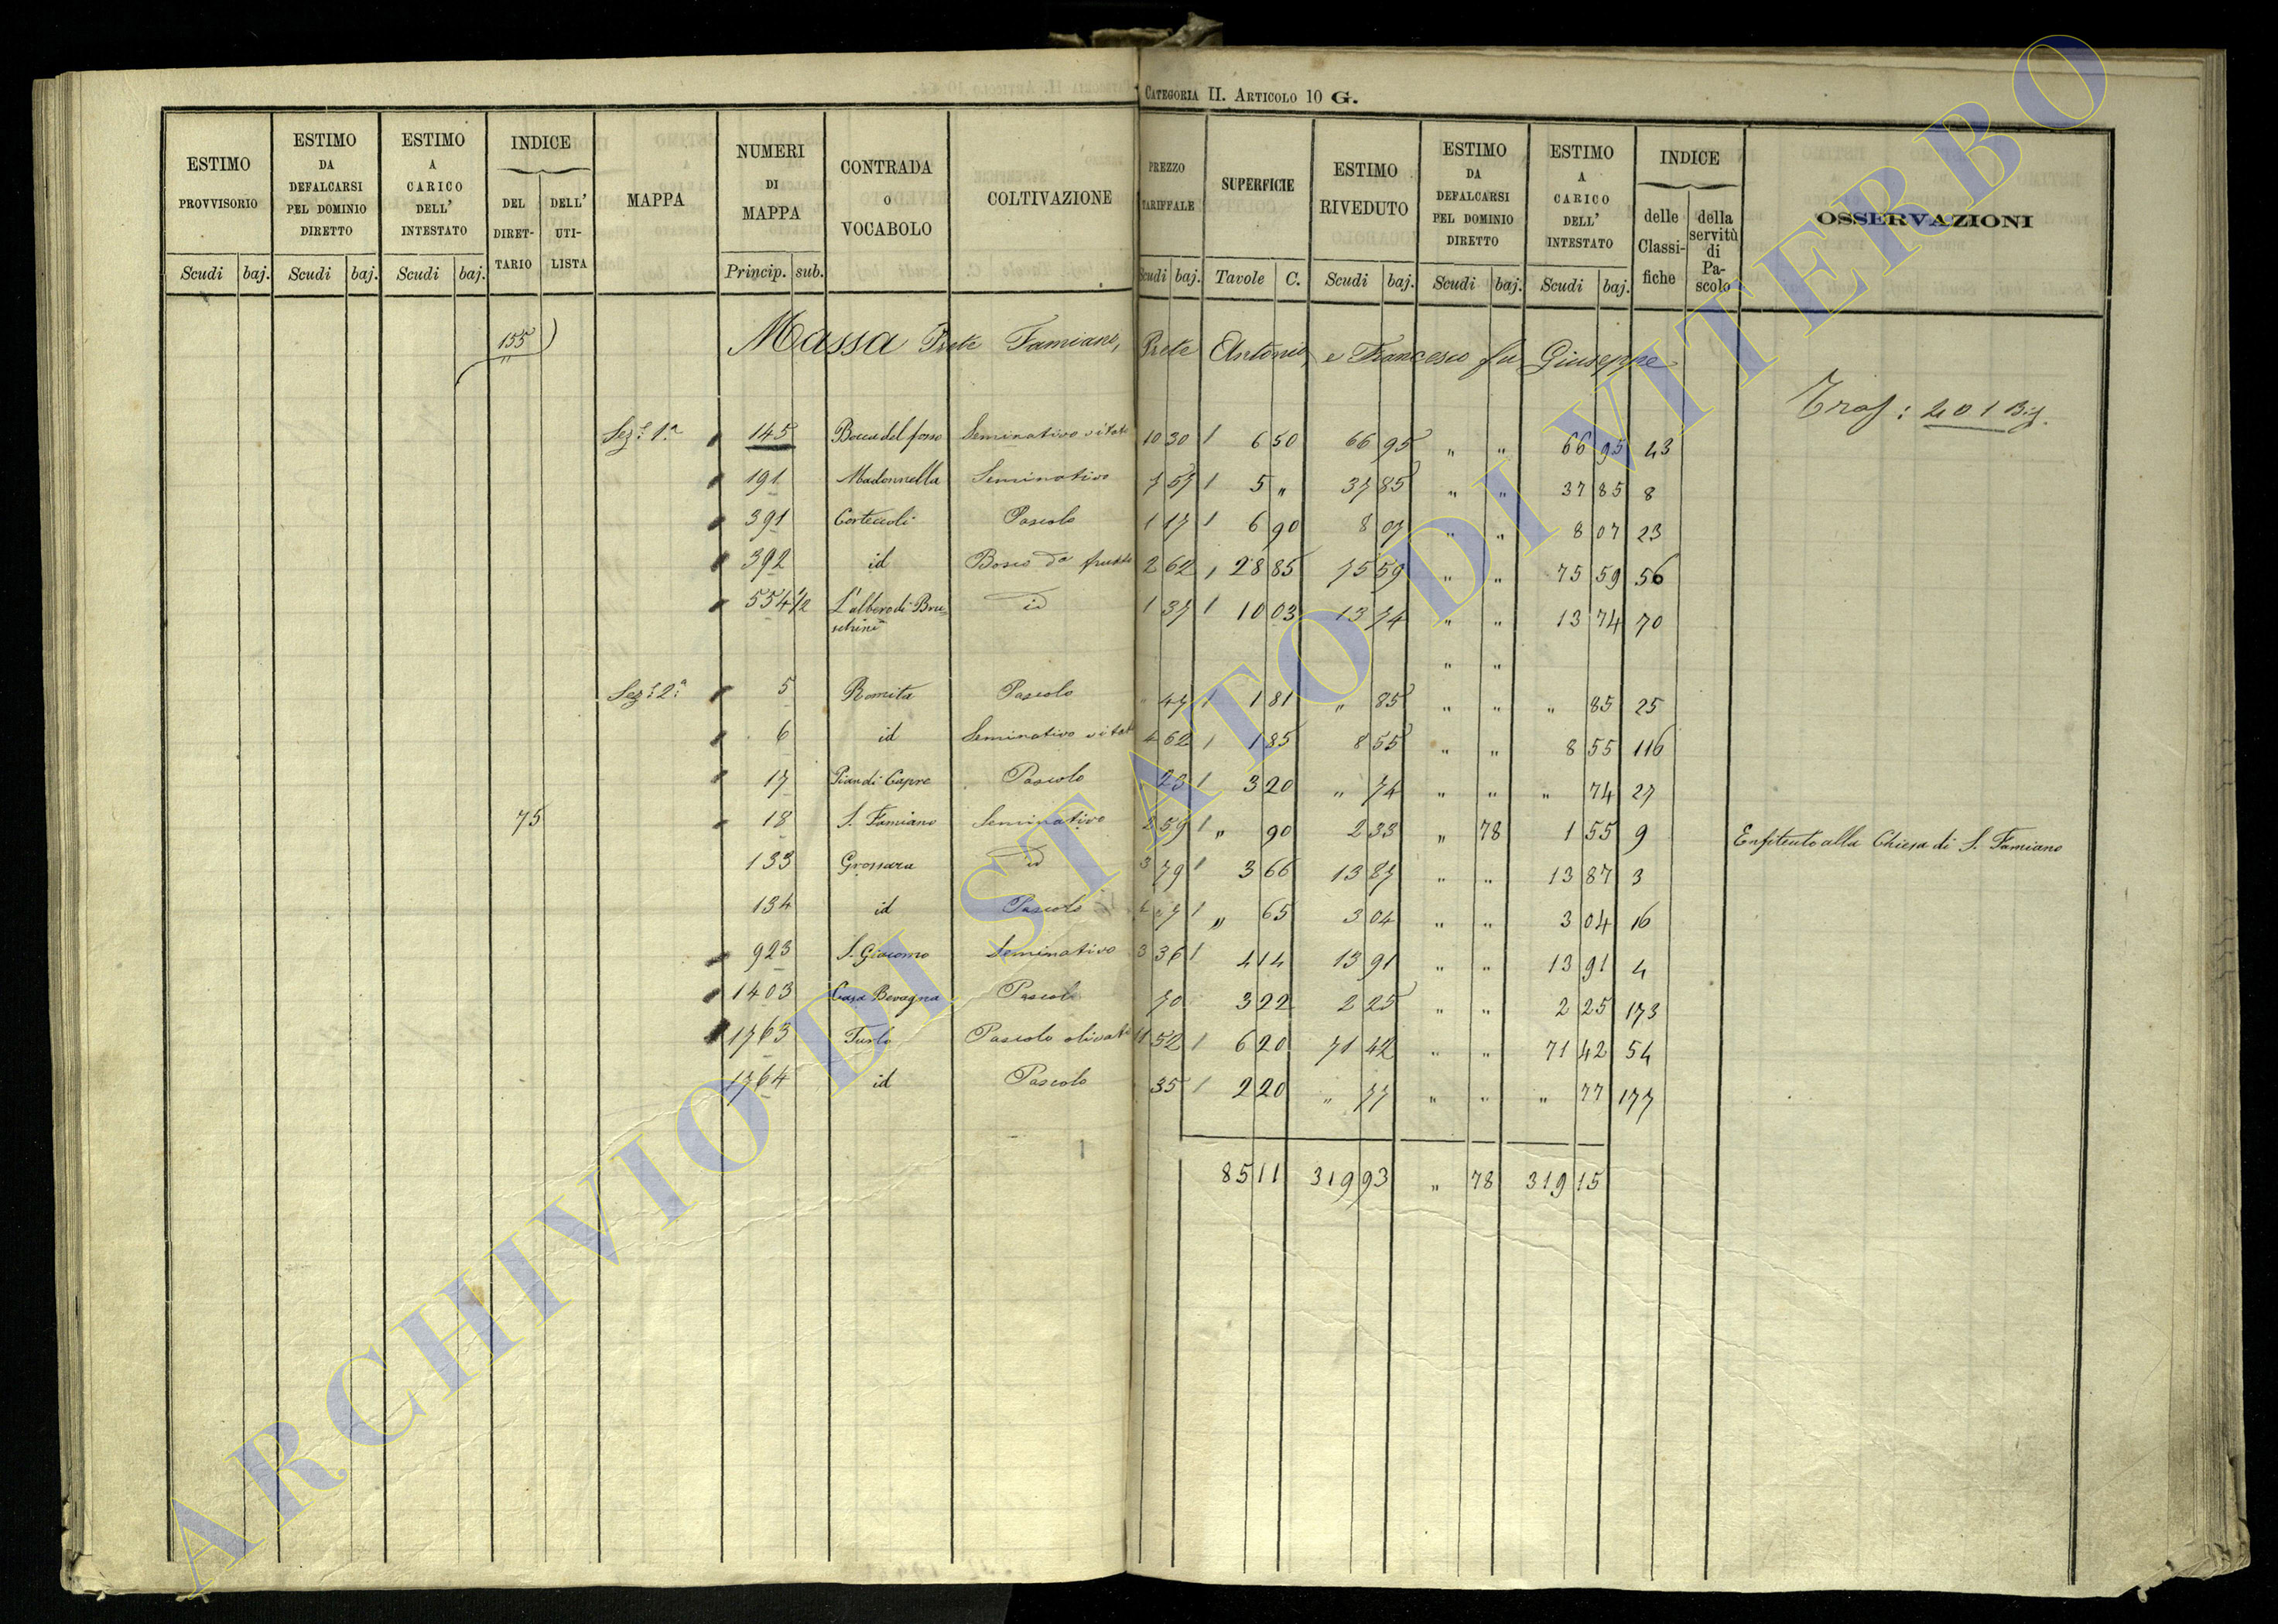 CATEGORIA II. ARTICOLO 10 G.
ESTIMO PROVVISORIO Scudi baj.
ESTIMO DA DEFALCARSI PEL DOMINIO DIRETTO Scudi baj.
ESTIMO A CARICO DELL' INTESTATO Scudi baj.
INDICE DEL DIRET-TARIO DELL' UTI-LISTA
MAPPA
NUMERI DI MAPPA Princip. sub.
CONTRADA O VOCABOLO
COLTIVAZIONE
PREZZO TARIFFALE Scudi baj.
SUPERFICIE Tavole C.
ESTIMO RIVEDUTO Scudi baj.
ESTIMO DA DEFALCARSI PEL DOMINIO DIRETTO Scudi baj.
ESTIMO A CARICO DELL' INTESTATO Scudi baj.
INDICE delle Classi-fiche della servitù di Pa-scolo
OSSERVAZIONI
155 Massa Prete Famiano, Prete Antonio, e Francesco fu Giuseppe
Traf: 201
Sez.e 1.a 145 Bocca del fosso Seminativo vitato 10 30 6 50 66 95 " " 66 95 43
191 Madonnella Seminativo 7 57 5 " 37 85 " " 37 85 8
391 Corteccoli Pascolo 1 17 6 90 8 07 " " 8 07 23
392 id Bosco da frutto 2 62 28 85 75 59 " " 75 59 56
554 1/2 L'albero di Bru- id 1 37 10 03 13 74 " " 13 74 70
schini
" "
Sez.e 2.a 5 Romita Pascolo " 47 1 81 " 85 " " " 85 25
6 id Seminativo vitato 4 62 1 85 8 55 " " 8 55 116
17 Pian di Capre Pascolo 23 3 20 " 74 " " " 74 27
75 18 S. Famiano Seminativo 2 59 " 90 2 33 " 78 1 55 9 Enfiteuto alla Chiesa di S. Famiano
133 Grossara id 3 79 3 66 13 87 " " 13 87 3
134 id Pascolo " 65 3 04 " " 3 04 16
923 S. Giacomo Seminativo 3 36 4 14 13 91 " " 13 91 4
1403 Casa Bevagna Pascolo 70 3 22 2 25 " " 2 25 173
1763 Turlo Pascolo olivato 11 52 6 20 71 42 " " 71 42 54
1764 id Pascolo 35 2 20 " 77 " " " 77 177
85 11 319 93 " 78 319 15
ARCHIVIO DI STATO DI VITERBO